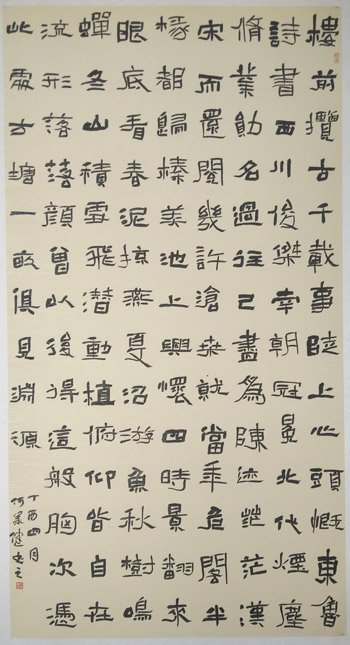 樓前攬古千載事陡上心頭慨東魯
詩書西川俊傑南朝冠冕北代煙塵
脩業勛名過往已盡為陳迹茫茫漢
宋而還閱幾許滄桑就當年危閣半
椽都歸榛莽池上興懷四時景翻來
眼底看春泥掠燕夏沼游魚秋樹鳴
蟬冬山積雪飛潛動植俯仰皆自在
流形落落顏曾以後得這般胸次憑
此處方塘一畝俱見淵源
丁酉四月
何